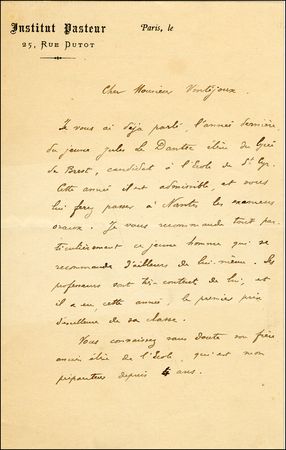 Institut Pasteur
25, Rue Dutot
Paris, le
Cher Monsieur
Je vous ai déjà parlé, l'année dernière
du jeune Jules Le Dantec élève du Lycée
de Brest, candidat à l'Ecole de St Cyr.
Cette année il est admissible, et vous
lui ferez passer à Nantes les examens
oraux. Je vous recommande tout par-
ticulièrement ce jeune homme qui se
recommande d'ailleurs de lui-même. Ses
professeurs sont très content de lui, et
il a eu, cette année, le premier prix
d'excellence de sa classe.
Vous connaissez sans doute son frère
ancien élève de l'Ecole, qui est mon
préparateur depuis 4 ans.